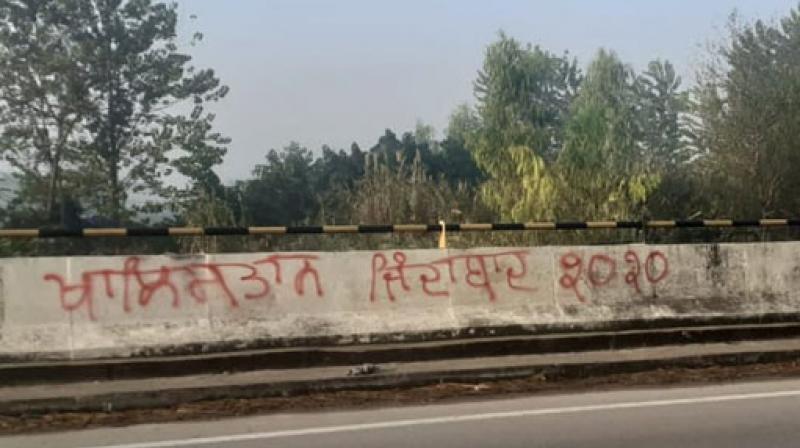 ਖਾਲਿਸਤਾਨ ਜਿੰਦਾਬਾਦ ੨੦੨੦